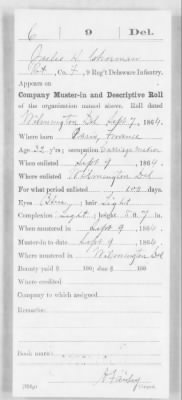 6 | 9 | Del.
Charles H. Schosman
Pvt, Co. F, 9 Reg't Delaware Infantry.
Appears on
Company Muster-in and Descriptive Roll
of the organization named above. Roll dated
Wilmington Del Sept 7, 1864.
Where born Paris, France
Age 32 y'rs; occupation Carriage maker
When enlisted Sept 9, 1864.
Where enlisted Wilmington Del
For what period enlisted 100 days.
Eyes Blue; hair Light
Complexion Light; height 5 ft. 7 in.
When mustered in Sept 9, 1864.
Muster-in to date Sept 9, 1864.
Where mustered in Wilmington Del
Bounty paid $ 100; due $ 100
Where credited
Company to which assigned
Remarks:
Book mark:
Copyist.